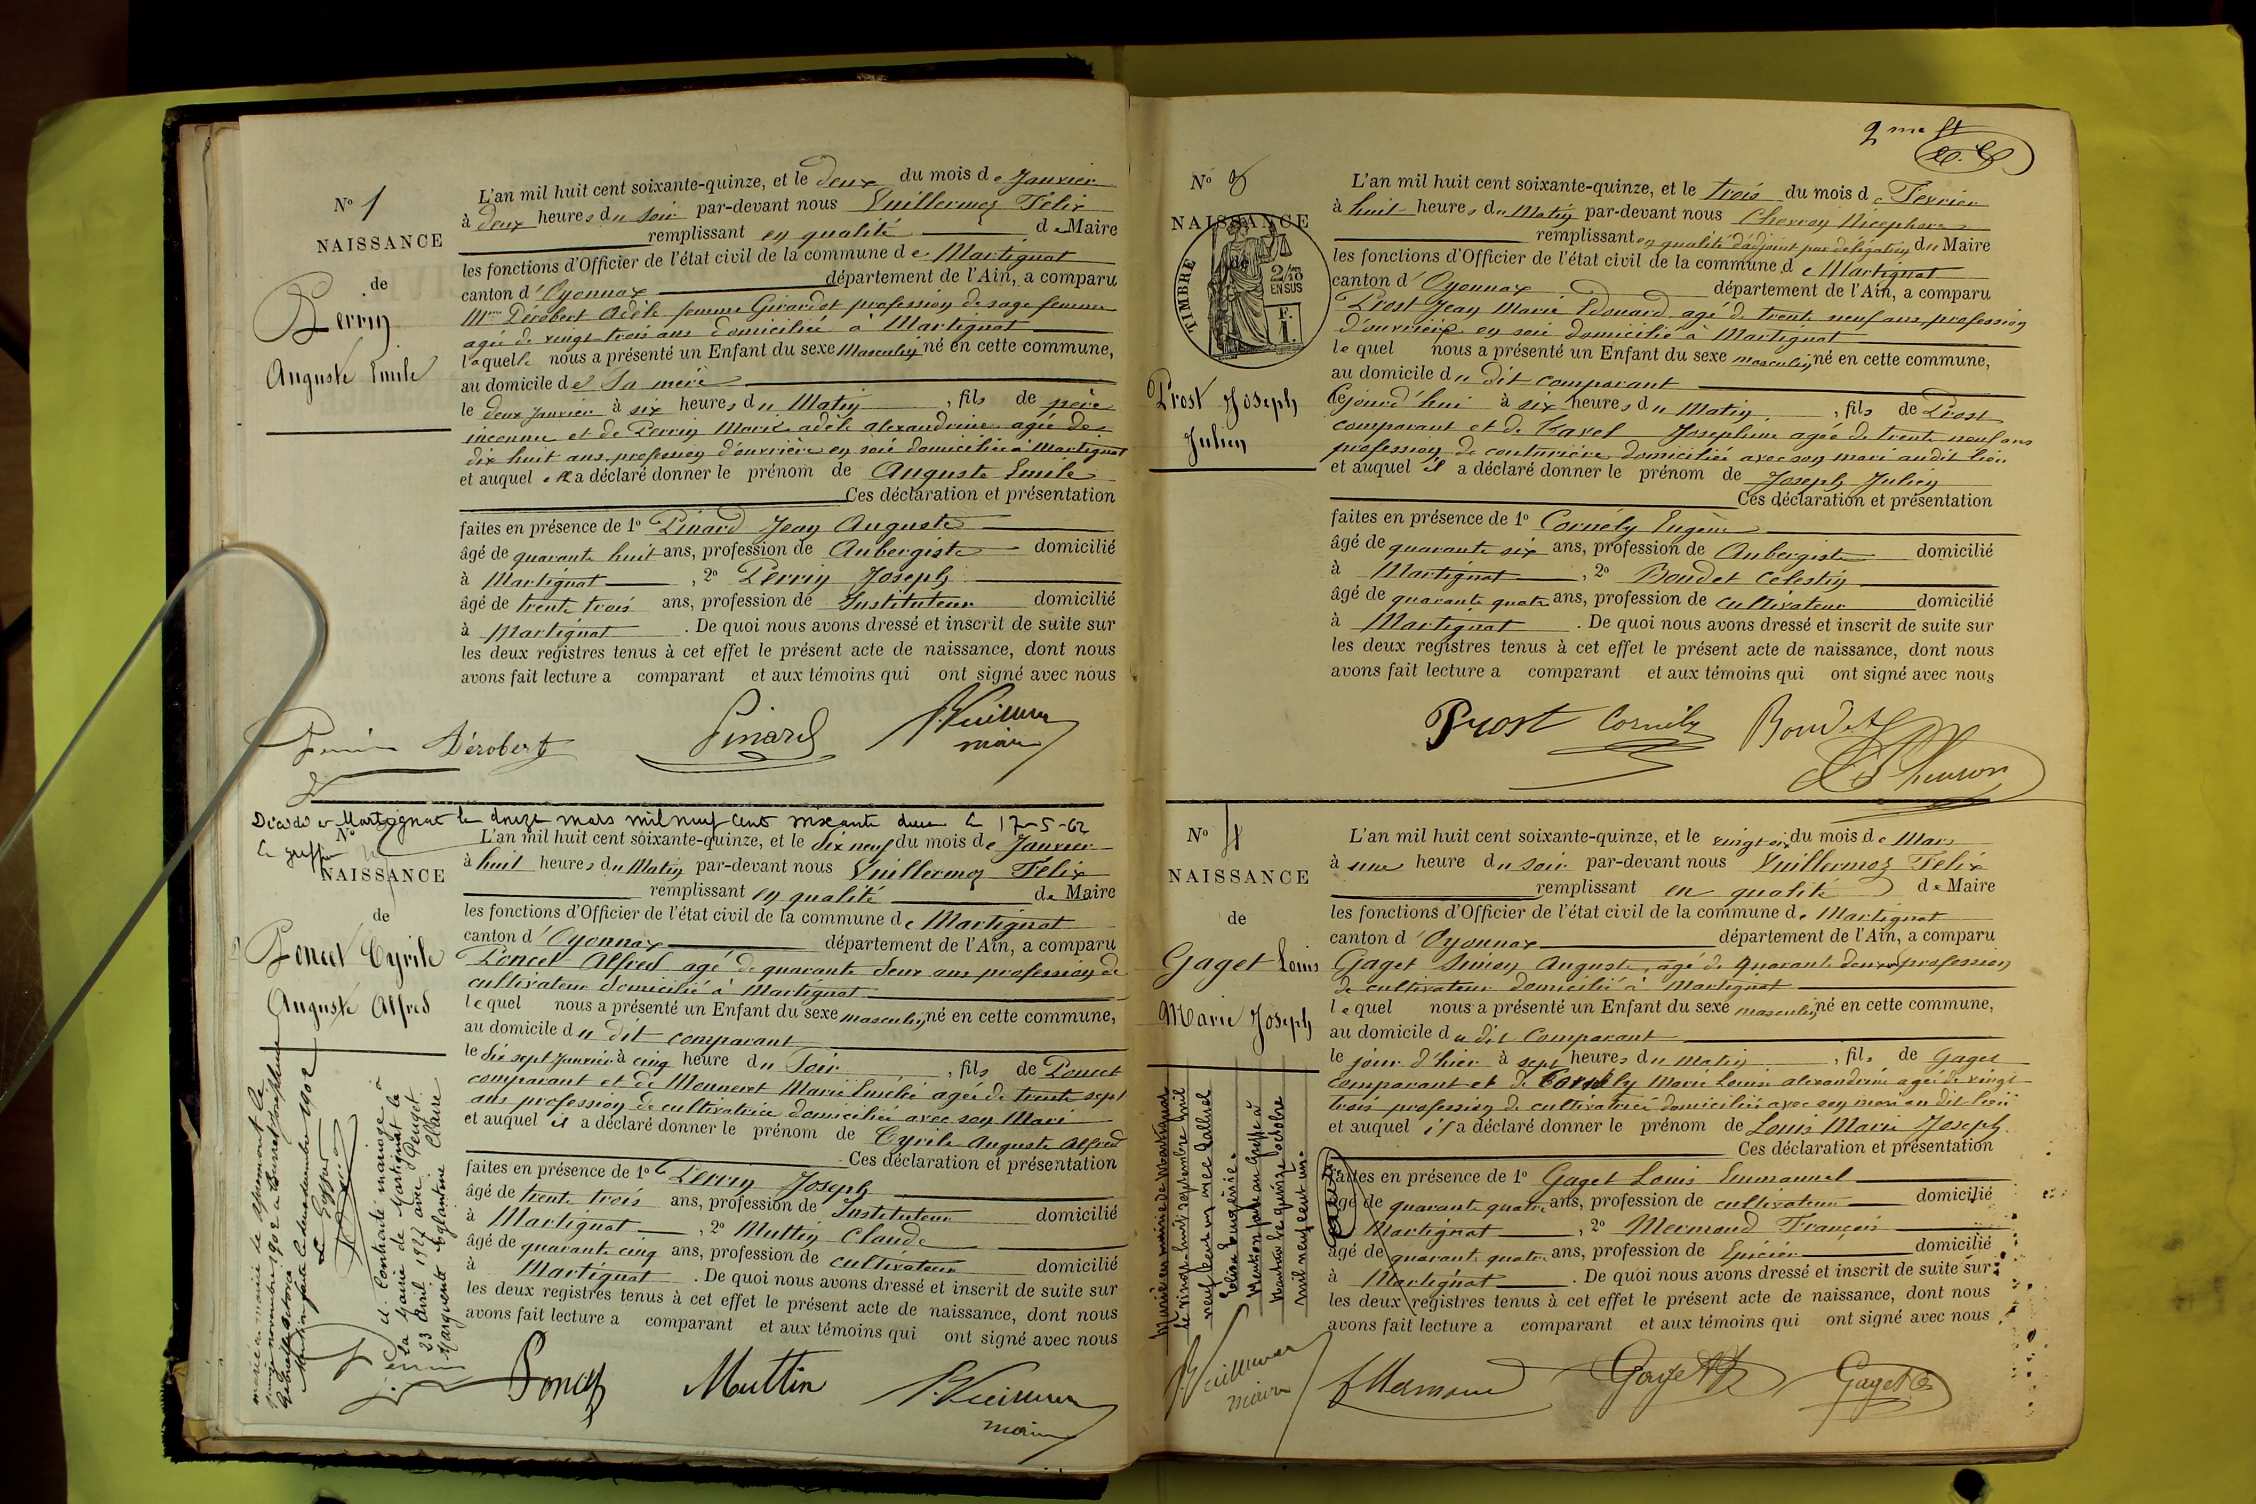 N° 1
NAISSANCE
de
Perrin
Auguste Emile
L'an mil huit cent soixante-quinze, et le deux du mois de Janvier
à deux heures du Soir par-devant nous Vuillermoz Félix
remplissant en qualité de Maire
les fonctions d'Officier de l'état civil de la commune de Martignat
canton d'Oyonnax département de l'Ain, a comparu
Mme Dérobert Adèle femme Girardot profession de sage femme
agée de vingt-trois ans domiciliée à Martignat
laquelle nous a présenté un Enfant du sexe Masculin né en cette commune,
au domicile de Sa mère
le deux Janvier à six heures du Matin, fils de père
inconnu et de Perrin Marie adèle alexandrine agée de
dix huit ans profession d'ouvrière en soie domiciliée à Martignat
et auquel elle a déclaré donner le prénom de Auguste Emile
Ces déclaration et présentation
faites en présence de 1° Pinard Jean Auguste
âgé de quarante huit ans, profession de Aubergiste domicilié
à Martignat, 2° Perrin Joseph
âgé de trente trois ans, profession de Instituteur domicilié
à Martignat. De quoi nous avons dressé et inscrit de suite sur
les deux registres tenus à cet effet le présent acte de naissance, dont nous
avons fait lecture a comparant et aux témoins qui ont signé avec nous
Perrin Dérobert Pinard F. Vuillermoz
maire
Décédé à Martignat le douze mars mil neuf cent soixante deux le 17-5-62
Le greffier
N° 2
NAISSANCE
de
Poncet Cyrile
Auguste Alfred
L'an mil huit cent soixante-quinze, et le dix neuf du mois de Janvier
à huit heures du Matin par-devant nous Vuillermoz Félix
remplissant en qualité de Maire
les fonctions d'Officier de l'état civil de la commune de Martignat
canton d'Oyonnax département de l'Ain, a comparu
Poncet Alfred agé de quarante deux ans profession de
cultivateur domicilié à Martignat
lequel nous a présenté un Enfant du sexe masculin né en cette commune,
au domicile du dit comparant
le dix sept Janvier à cinq heure du Soir, fils de Poncet
comparant et de Monneret Marie Emélie agée de trente sept
ans profession de cultivatrice domiciliée avec son Mari
et auquel il a déclaré donner le prénom de Cyrile Auguste Alfred
Ces déclaration et présentation
faites en présence de 1° Perrin Joseph
âgé de trente trois ans, profession de Instituteur domicilié
à Martignat, 2° Muttin Claude
âgé de quarante cinq ans, profession de cultivateur domicilié
à Martignat. De quoi nous avons dressé et inscrit de suite sur
les deux registres tenus à cet effet le présent acte de naissance, dont nous
avons fait lecture a comparant et aux témoins qui ont signé avec nous
novembre 1902
Mention faite le décembre 1902
Le Greffier
a Contracté mariage à
la Mairie de Martignat le
23 avril 1927 avec
Marguerite Eglantine Claire
J. Perrin Poncet Muttin F. Vuillermoz
maire
2me ft
N° 3
NAISSANCE
de
TIMBRE
2/10
EN SUS
F.
1.
Prost Joseph
Julien
L'an mil huit cent soixante-quinze, et le trois du mois de Février
à huit heures du Matin par-devant nous Chevron Nicephore
remplissant en qualité d'adjoint par délégation du Maire
les fonctions d'Officier de l'état civil de la commune de Martignat
canton d'Oyonnax département de l'Ain, a comparu
Prost Jean Marie Edouard agé de trente neuf ans profession
d'ouvrier en soie domicilié à Martignat
lequel nous a présenté un Enfant du sexe masculin né en cette commune,
au domicile du dit comparant
Cejourd'hui à six heures du Matin, fils de Prost
comparant et de Favel Joséphine agée de trente neuf ans
profession de couturière domiciliée avec son mari audit lieu
et auquel il a déclaré donner le prénom de Joseph Julien
Ces déclaration et présentation
faites en présence de 1° Cornély Eugène
âgé de quarante six ans, profession de Aubergiste domicilié
à Martignat, 2° Boudet Célestin
âgé de quarante quatre ans, profession de cultivateur domicilié
à Martignat. De quoi nous avons dressé et inscrit de suite sur
les deux registres tenus à cet effet le présent acte de naissance, dont nous
avons fait lecture a comparant et aux témoins qui ont signé avec nous
Prost Cornély Boudet
Chevron
N° 4
NAISSANCE
de
Gaget Louis
Marie Joseph
L'an mil huit cent soixante-quinze, et le vingt-six du mois de Mars
à une heure du soir par-devant nous Vuillermoz Félix
remplissant en qualité de Maire
les fonctions d'Officier de l'état civil de la commune de Martignat
canton d'Oyonnax département de l'Ain, a comparu
Gaget Simon Auguste, agé de quarante deux ans profession
de cultivateur domicilié à Martignat
lequel nous a présenté un Enfant du sexe masculin né en cette commune,
au domicile du dit Comparant
le jour d'hier à sept heures du matin, fils de Gaget
comparant et de Cornély Marie Louise alexandrine agée de vingt
trois profession de cultivatrice domiciliée avec son mari au dit lieu
et auquel il a déclaré donner le prénom de Louis Marie Joseph
Ces déclaration et présentation
faites en présence de 1° Gaget Louis Emmanuel
âgé de quarante quatre ans, profession de cultivateur domicilié
à Martignat, 2° Mermond François
âgé de quarante quatre ans, profession de Epicier domicilié
à Martignat. De quoi nous avons dressé et inscrit de suite sur
les deux registres tenus à cet effet le présent acte de naissance, dont nous
avons fait lecture a comparant et aux témoins qui ont signé avec nous
Marié en mairie de Martignat
le vingt-huit septembre mil
neuf cent un avec
Elisa Eugénie.
Mention faite au Greffe à
Nantua le quinze octobre
mil neuf cent un.
F. Vuillermoz
maire
F Mermond Gaget Gaget